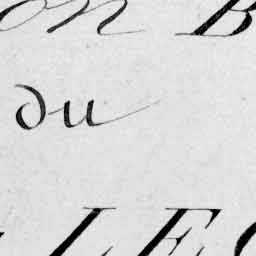 on B
du
LEC